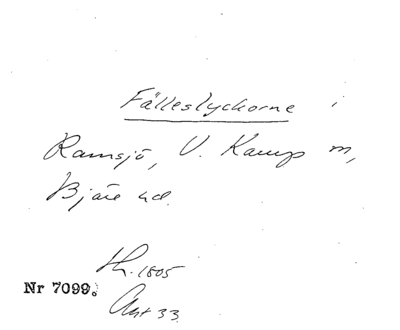 Fälleslyckorne i
Ramsjö, V. Karup sn,
Bjäre hd.
Lh. 1805
Nr 7099.
Akt 33